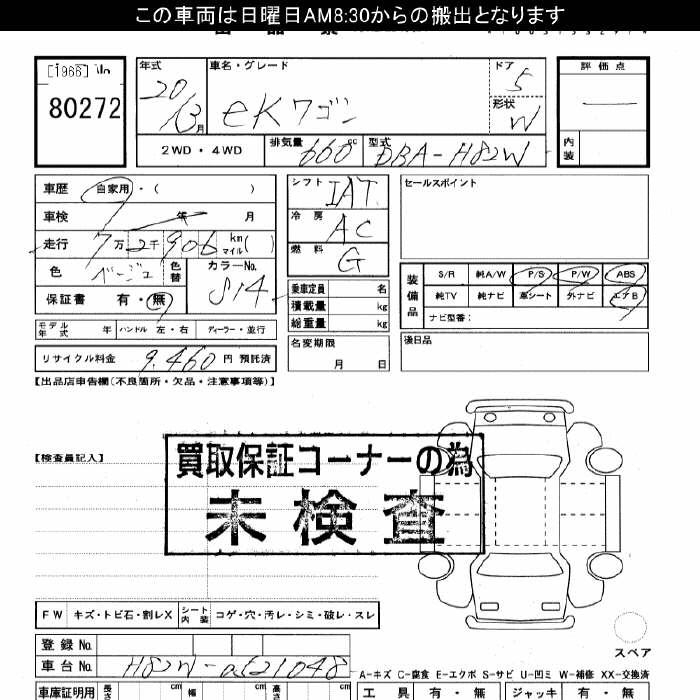 この車両は日曜日AM8:30からの搬出となります
[1966]
80272
年式 車名・グレード ドア
20 / 3 月 eKワゴン 5
形状 W
2WD・4WD 排気量 660 cc 型式 DBA-H82W
評価点
内装
車歴 自家用・( )
車検 年 月
走行 7万 2千 906 km マイル ( )
色 ベージュ 色替 カラーNo. S14
保証書 有・無
シフト IAT
冷房 AC
燃料 G
乗車定員 名
積載量 kg
総重量 kg
セールスポイント
装備品 S/R 純A/W P/S P/W ABS
純TV 純ナビ 革シート 外ナビ エアB
ナビ型番:
モデル年式 年 ハンドル 左・右 ディーラー・並行
リサイクル料金 9,460 円 預託済
名変期限 月 日
後日品
【出品店申告欄(不良箇所・欠品・注意事項等)】
【検査員記入】
買取保証コーナーの為
未検査
FW キズ・トビ石・割レX シート内装 コゲ・穴・汚レ・シミ・破レ・スレ
スペア
登録No.
車台No. H82W-
A-キズ C-腐食 E-エクボ S-サビ U-凹ミ W-補修 XX-交換済
車庫証明用 長さ cm 幅 cm 高さ cm
工具 有・無 ジャッキ 有・無